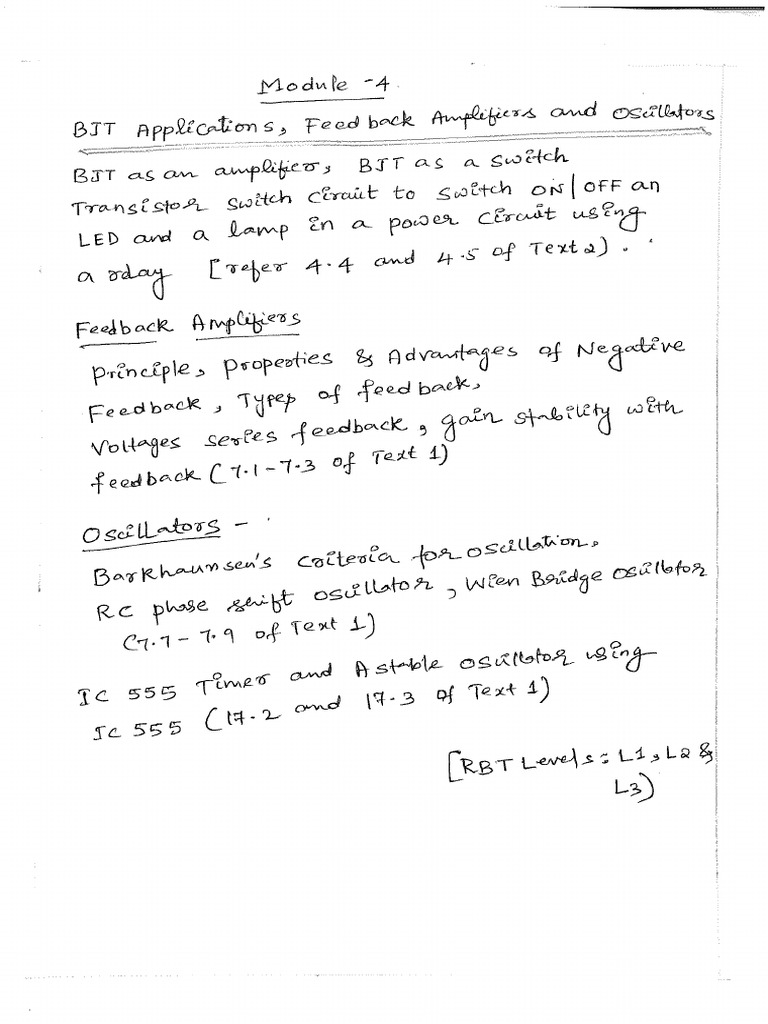 Module -4
BJT Applications, Feedback Amplifiers and Oscillators
BJT as an amplifier, BJT as a switch
Transistor switch circuit to switch ON/OFF an
LED and a lamp in a power circuit using
a relay [refer 4.4 and 4.5 of Text 2).
Feedback Amplifiers
Principle, Properties & Advantages of Negative
Feedback, Types of feedback,
Voltages series feedback, gain stability with
feedback (7.1-7.3 of Text 1)
Oscillators -
Barkhaunsen's criteria for oscillation,
RC phase shift oscillator, Wien Bridge oscillator
(7.7-7.9 of Text 1)
IC 555 Timer and Astable oscillator using
IC 555 (17.2 and 17.3 of Text 1)
[RBT Levels: L1, L2 &
L3)